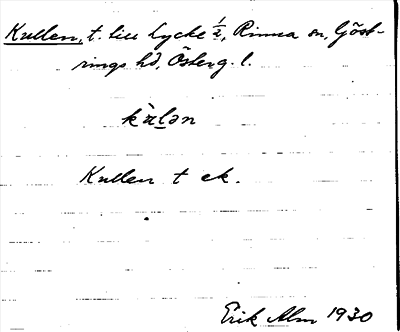 Kullen, t. till Lycke 1/2, Rinna sn, Göst-
rings hd, Österg. l.
kùlən
Kullen t ek.
Erik Alm 1930